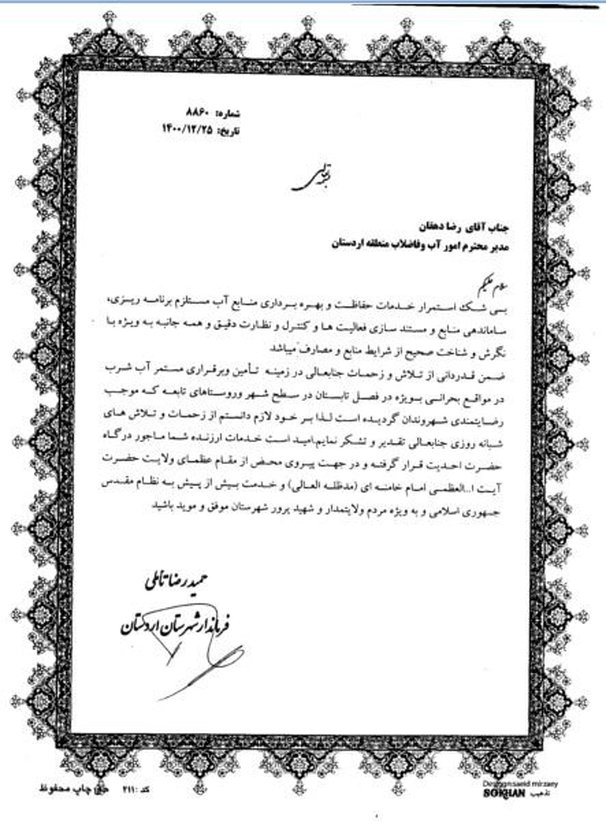 شماره: ۸۸۶۰
تاریخ: ۱۴۰۰/۱۲/۲۵
بسمه تعالی
جناب آقای رضا دهقان
مدیر محترم امور آب وفاضلاب منطقه اردستان
سلام علیکم
بی شک استمرار خدمات حفاظت و بهره برداری منابع آب مستلزم برنامه ریزی،
ساماندهی منابع و مستند سازی فعالیت ها و کنترل و نظارت دقیق و همه جانبه به ویژه با
نگرش و شناخت صحیح از شرایط منابع و مصارف میباشد
ضمن قدردانی از تلاش و زحمات جنابعالی در زمینه تأمین وبرقراری مستمر آب شرب
در مواقع بحرانی بویژه در فصل تابستان در سطح شهر وروستاهای تابعه که موجب
رضایتمندی شهروندان گردیده است لذا بر خود لازم دانستم از زحمات و تلاش های
شبانه روزی جنابعالی تقدیر و تشکر نمایم.امید است خدمات ارزنده شما ماجور درگاه
حضرت احدیت قرار گرفته و در جهت پیروی محض از مقام عظمای ولایت حضرت
آیت ا...العظمی امام خامنه ای (مدظله العالی) و خدمت بیش از پیش به نظام مقدس
جمهوری اسلامی و به ویژه مردم ولایتمدار و شهید پرور شهرستان موفق و موید باشید.
حمیدرضا تأملی
فرماندار شهرستان اردستان
کد: ۲۱۱ حق چاپ محفوظ
Design:saeid mirzaey
SOKHAN تذهیب